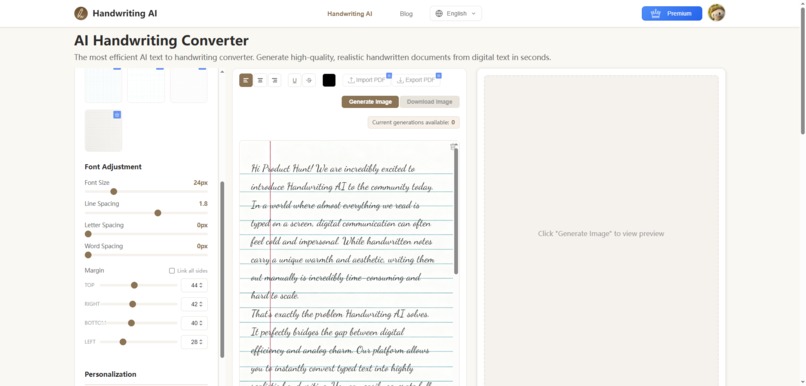 Handwriting AI
Handwriting AI
Blog
English
Premium
AI Handwriting Converter
The most efficient AI text to handwriting converter. Generate high-quality, realistic handwritten documents from digital text in seconds.
Import PDF
Export PDF
Generate Image
Download Image
Current generations available: 0
Font Adjustment
Font Size 24px
Line Spacing 1.8
Letter Spacing 0px
Word Spacing 0px
Margin
Link all sides
TOP 44
RIGHT 42
BOTTOM 40
LEFT 28
Personalization
Hi Product Hunt! We are incredibly excited to
introduce Handwriting AI to the community today.
In a world where almost everything we read is
typed on a screen, digital communication can often
feel cold and impersonal. While handwritten notes
carry a unique warmth and aesthetic, writing them
out manually is incredibly time-consuming and
hard to scale.
That's exactly the problem Handwriting AI solves.
It perfectly bridges the gap between digital
efficiency and analog charm. Our platform allows
you to instantly convert typed text into highly
Click "Generate Image" to view preview